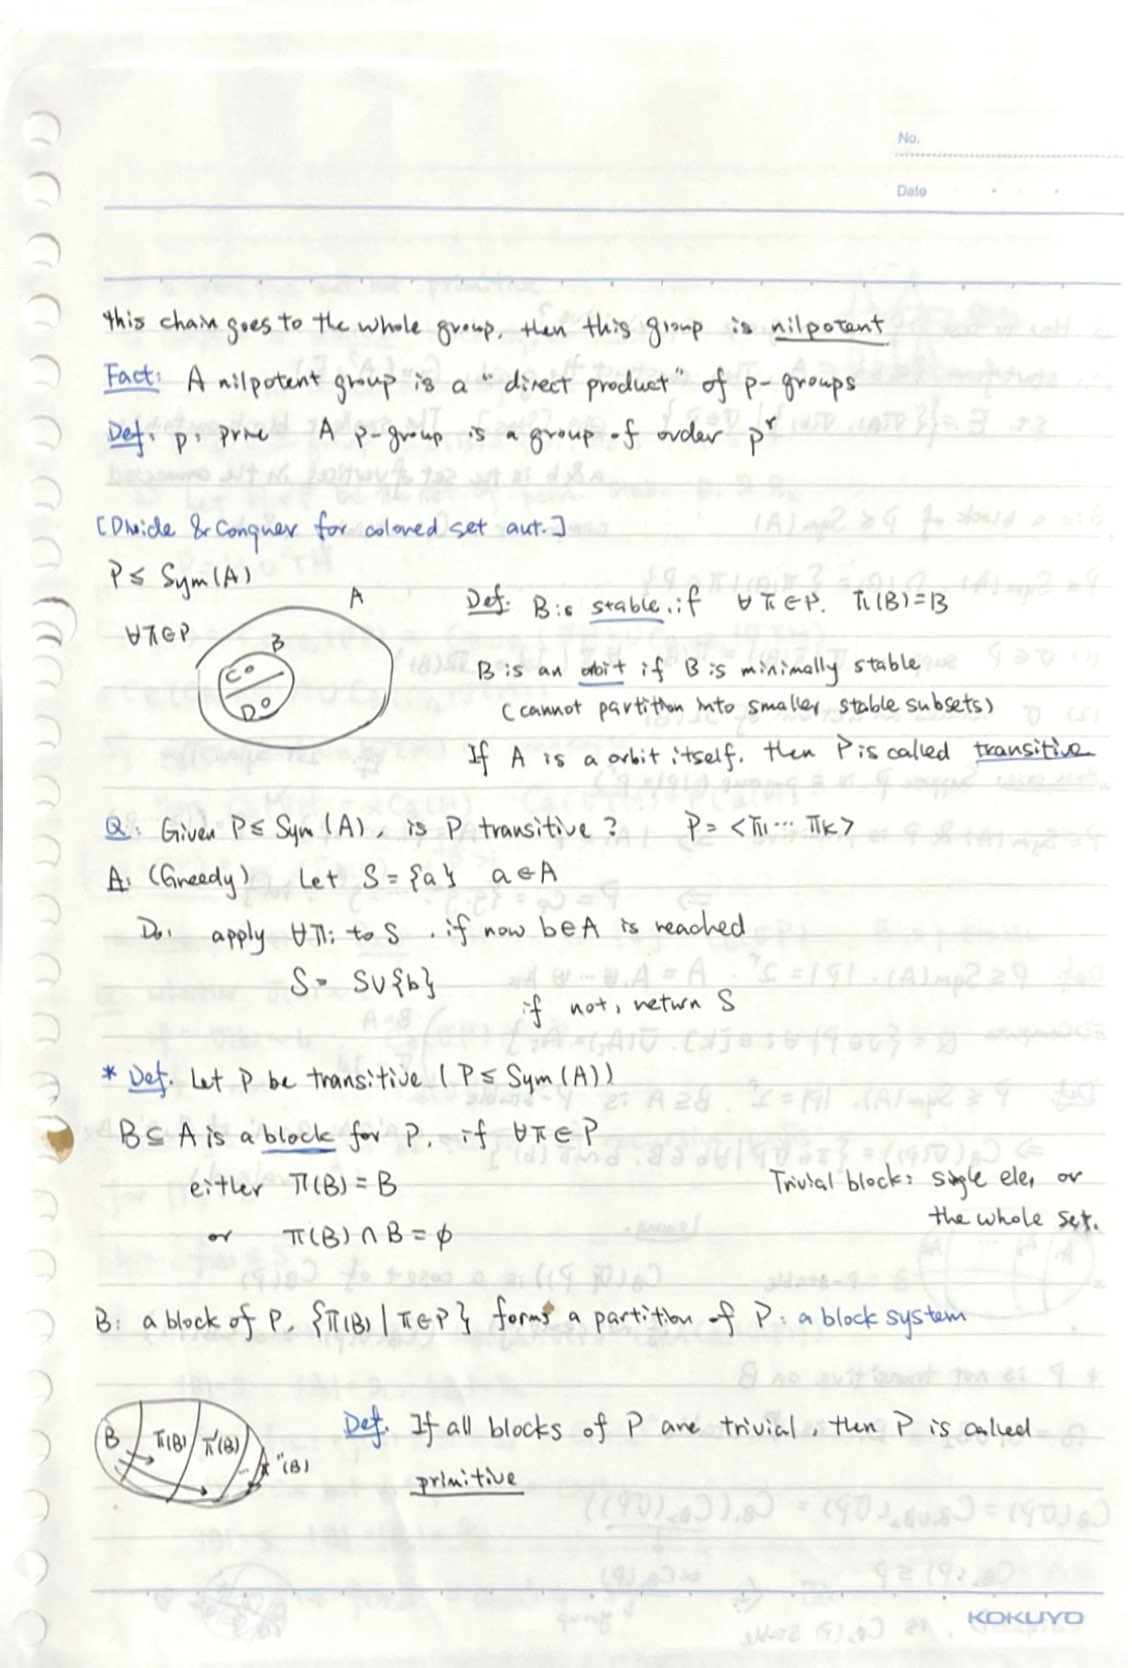 No.
Date
this chain goes to the whole group, then this group is nilpotent
Fact: A nilpotent group is a "direct product" of p-groups
Def: p: prime A p-group is a group of order pʳ
[Divide & Conquer for colored set aut.]
P ≤ Sym(A)
∀π∈P
A
B
C
D
Def: B is stable, if ∀π∈P. π(B)=B
B is an orbit if B is minimally stable
(cannot partition into smaller stable subsets)
If A is a orbit itself, then P is called transitive
Q: Given P ≤ Sym(A), is P transitive? P = <π₁ ... πk>
A: (Greedy) Let S = {a} a∈A
Do: apply ∀πi to S, if now b∈A is reached
S = S∪{b}
if not, return S
* Def. Let P be transitive (P ≤ Sym(A))
B ⊆ A is a block for P, if ∀π∈P
either π(B) = B
or π(B) ∩ B = ϕ
Trivial block: single ele, or
the whole set.
B: a block of P. {π(B) | π∈P} forms a partition of P: a block system
B π(B) π'(B) ... π''(B)
Def. If all blocks of P are trivial, then P is called
primitive
KOKUYO